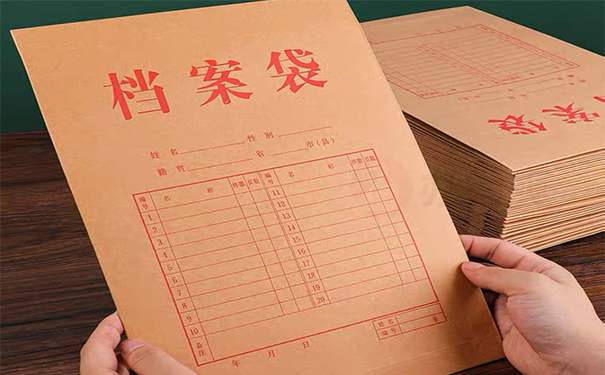 档案袋
姓名 性别
籍贯 省 市(县)
编号 名称 件数 页数 11
1 12
2 13
3 14
4 15
5 16
6 17
7 18
8 19
9 20
10
备注
年 月 日
姓名
编号 号
档案袋